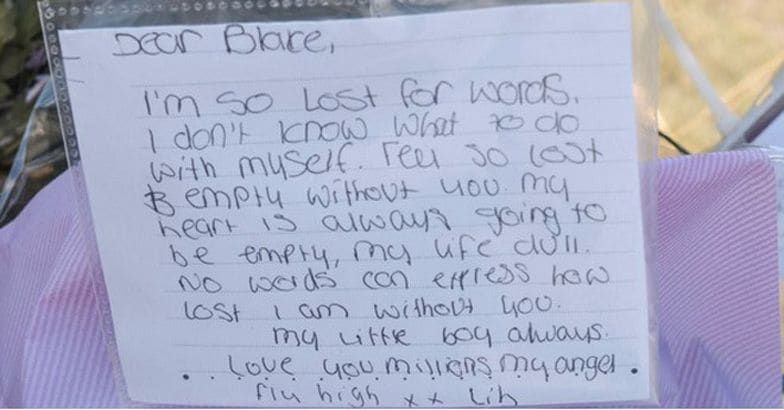 Dear Blake,
I'm so lost for words.
I don't know what to do
with myself. Feel so lost
& empty without you. my
heart is always going to
be empty, my life dull.
No words can express how
lost I am without you.
my little boy always.
. . love you millions my angel .
fly high xx Lib